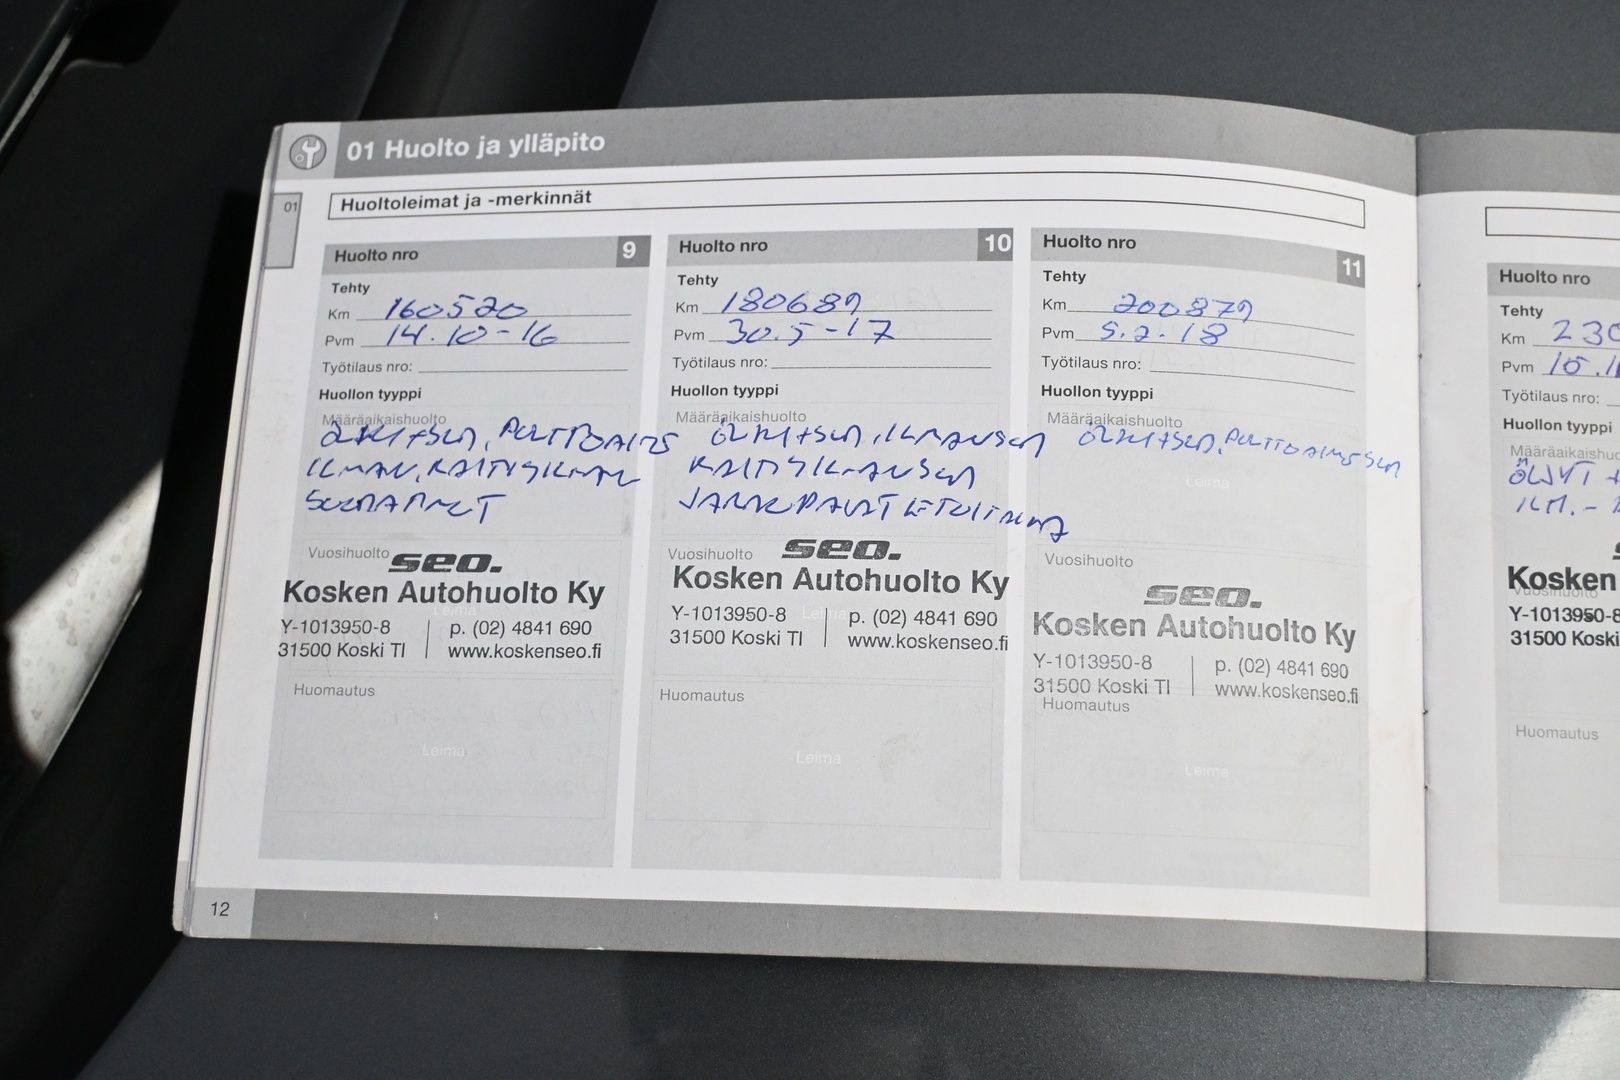 01 Huolto ja ylläpito
01
Huoltoleimat ja -merkinnät
Huolto nro 9
Tehty
Km 160520
Pvm 14.10-16
Työtilaus nro:
Huollon tyyppi
Määräaikaishuolto
ILMAN,
Vuosihuolto
seo.
Kosken Autohuolto Ky
Leima
Y-1013950-8 p. (02) 4841 690
31500 Koski Tl www.koskenseo.fi
Huomautus
Leima
Huolto nro 10
Tehty
Km 180689
Pvm 30.5-17
Työtilaus nro:
Huollon tyyppi
Määräaikaishuolto
Vuosihuolto
seo.
Kosken Autohuolto Ky
Leima
Y-1013950-8 p. (02) 4841 690
31500 Koski Tl www.koskenseo.fi
Huomautus
Leima
Huolto nro 11
Tehty
Km 200879
Pvm 5.2.18
Työtilaus nro:
Huollon tyyppi
Määräaikaishuolto
Leima
Vuosihuolto
seo.
Kosken Autohuolto Ky
Y-1013950-8 p. (02) 4841 690
31500 Koski Tl www.koskenseo.fi
Huomautus
Leima
12
Huolto nro
Tehty
Km 230
Pvm 15.1
Työtilaus nro:
Huollon tyyppi
Määräaikaishuo
ÖLJYT +
ILM. -
Kosken
Vuosihuolto
Y-1013950-8
31500 Koski
Huomautus